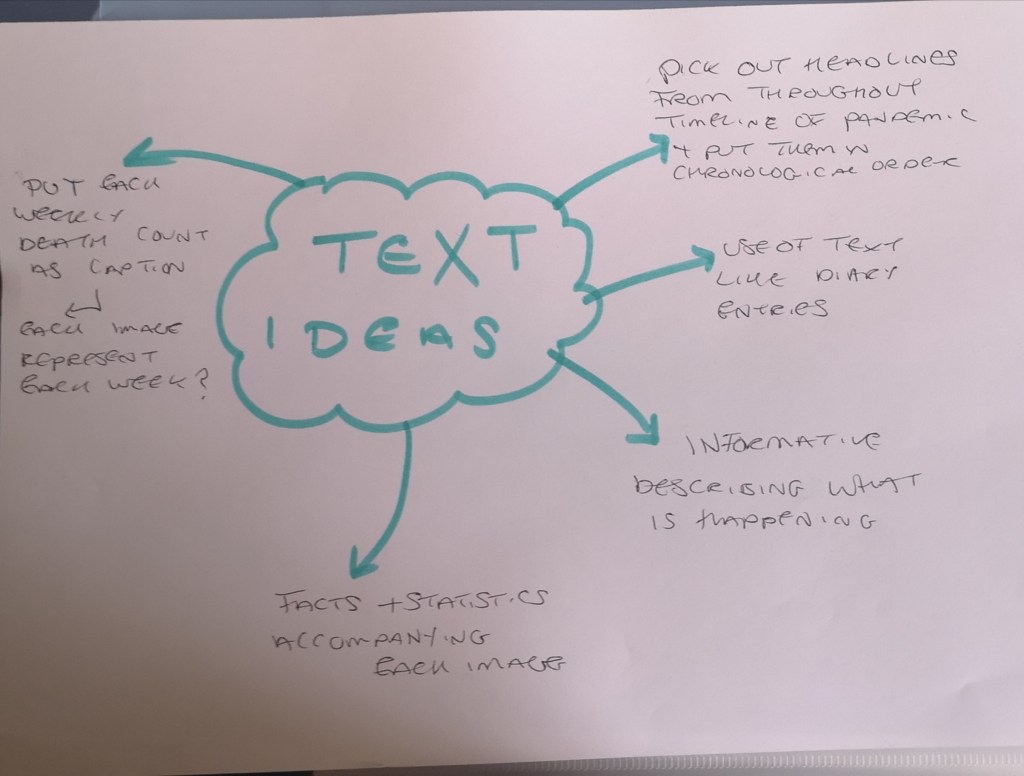 TEXT
IDEAS
PICK OUT HEADLINES
FROM THROUGHOUT
TIMELINE OF PANDEMIC
+ PUT THEM IN
CHRONOLOGICAL ORDER
USE OF TEXT
LIKE DIARY
ENTRIES
INFORMATIVE
DESCRIBING WHAT
IS HAPPENING
FACTS + STATISTICS
ACCOMPANYING
EACH IMAGE
PUT EACH
WEEKLY
DEATH COUNT
AS CAPTION
EACH IMAGE
REPRESENT
EACH WEEK?